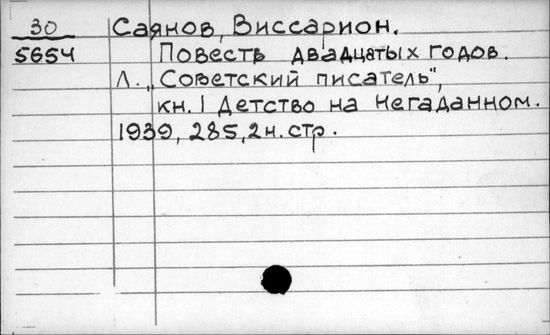 30 Саянов, Виссарион.
5654 Повесть двадцатых годов.
Л. „Советский писатель",
кн. I Детство на Негаданном.
1939, 285, 2 н. стр.